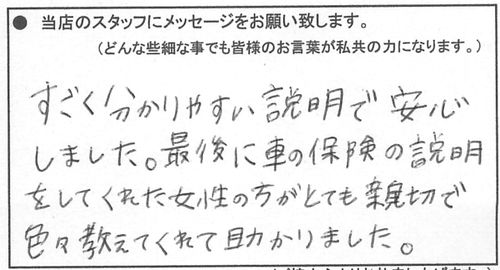 ● 当店のスタッフにメッセージをお願い致します。
(どんな些細な事でも皆様のお言葉が私共の力になります。)
すごく分かりやすい説明で安心
しました。最後に車の保険の説明
をしてくれた女性の方がとても親切で
色々教えてくれて助かりました。